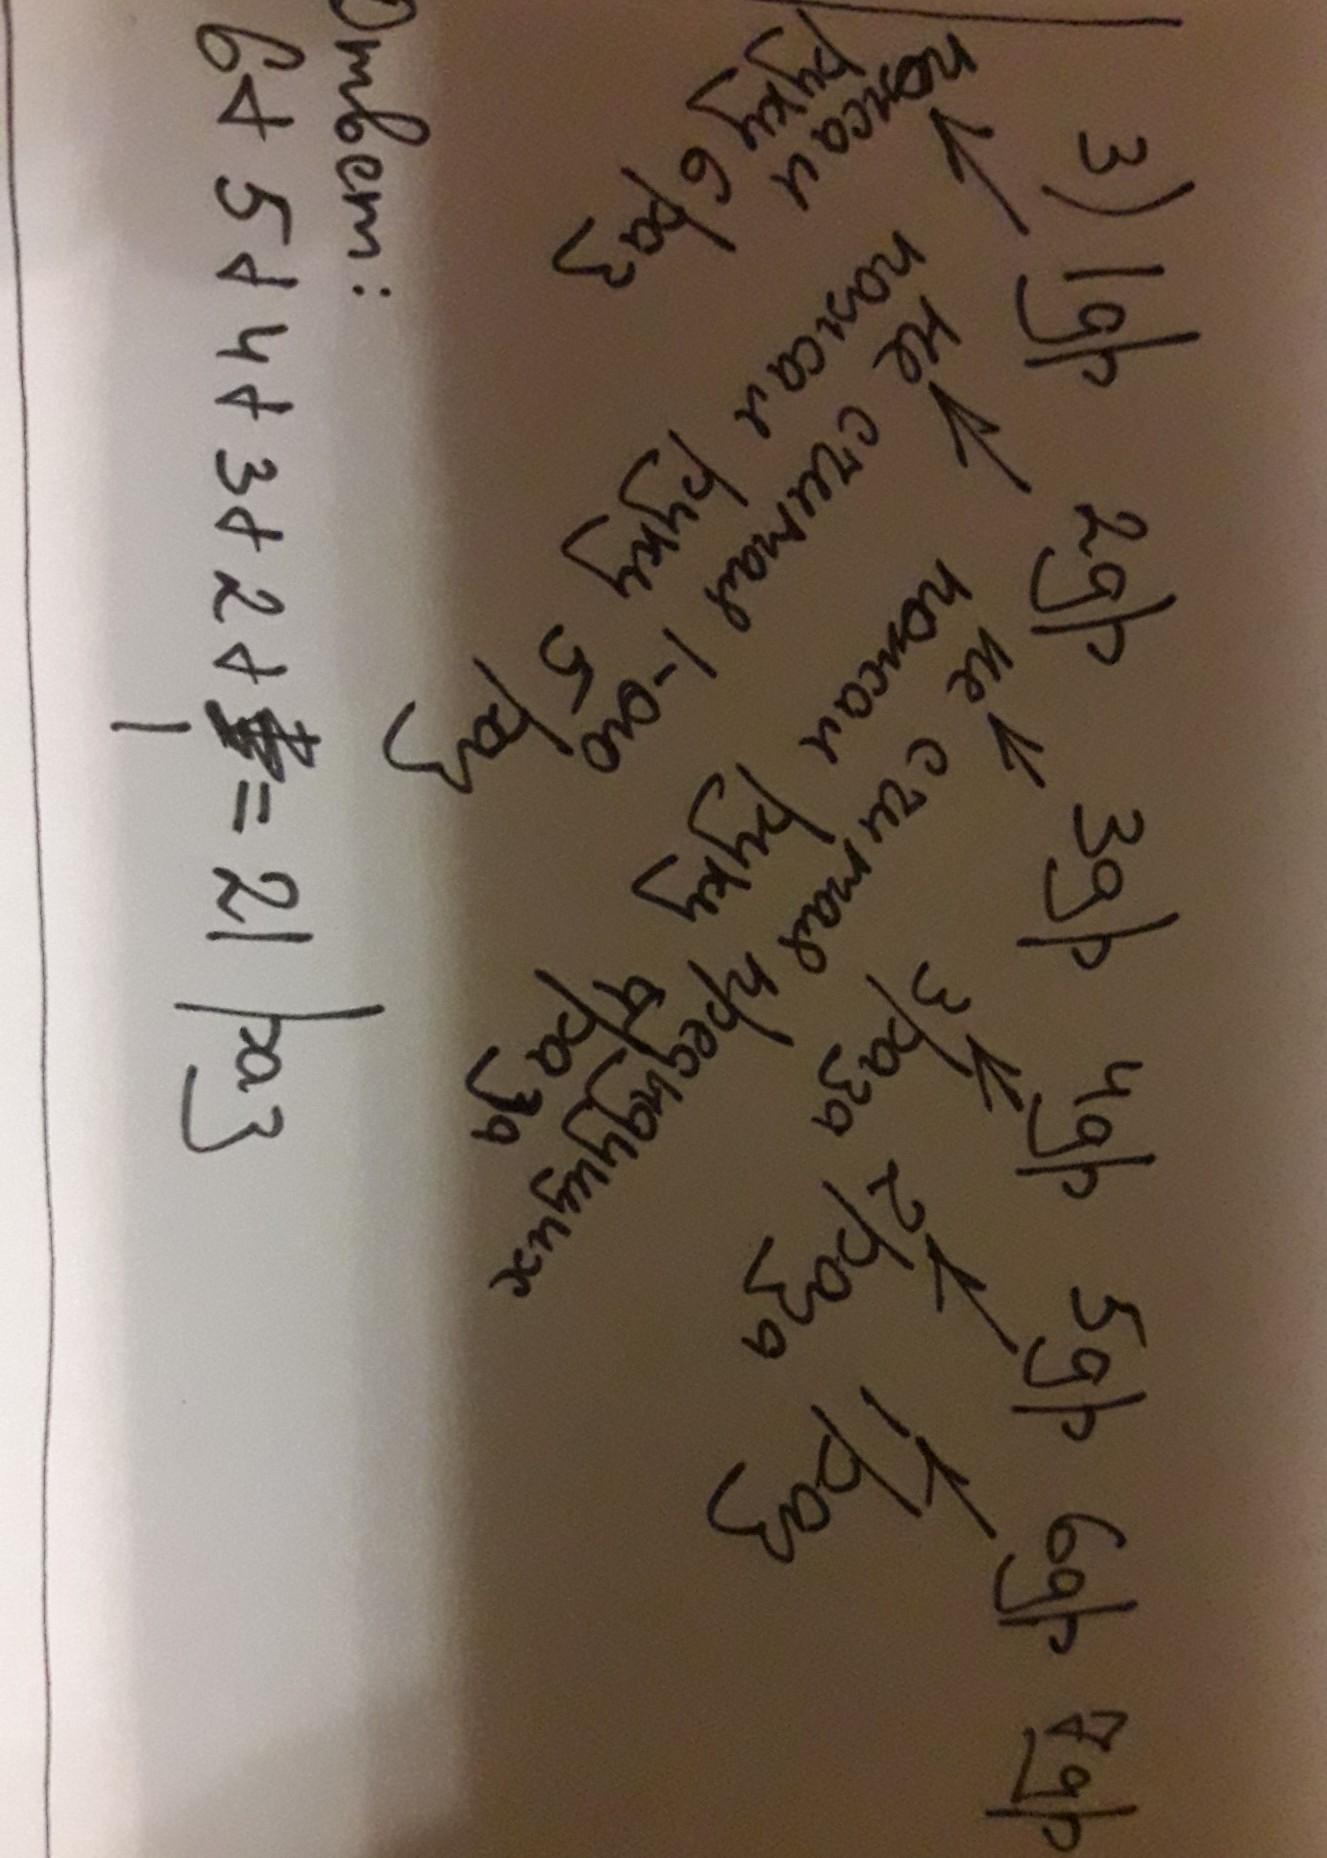 3) 1др 2др 3др 4др 5др 6др 7др
пожал
руку 6 раз
не считая 1-ого
пожал руку 5 раз
не считая предыдущих
пожал руку 4 раза
3 раза
2 раза
1 раз
Ответ:
6+5+4+3+2+ = 21 раз
1